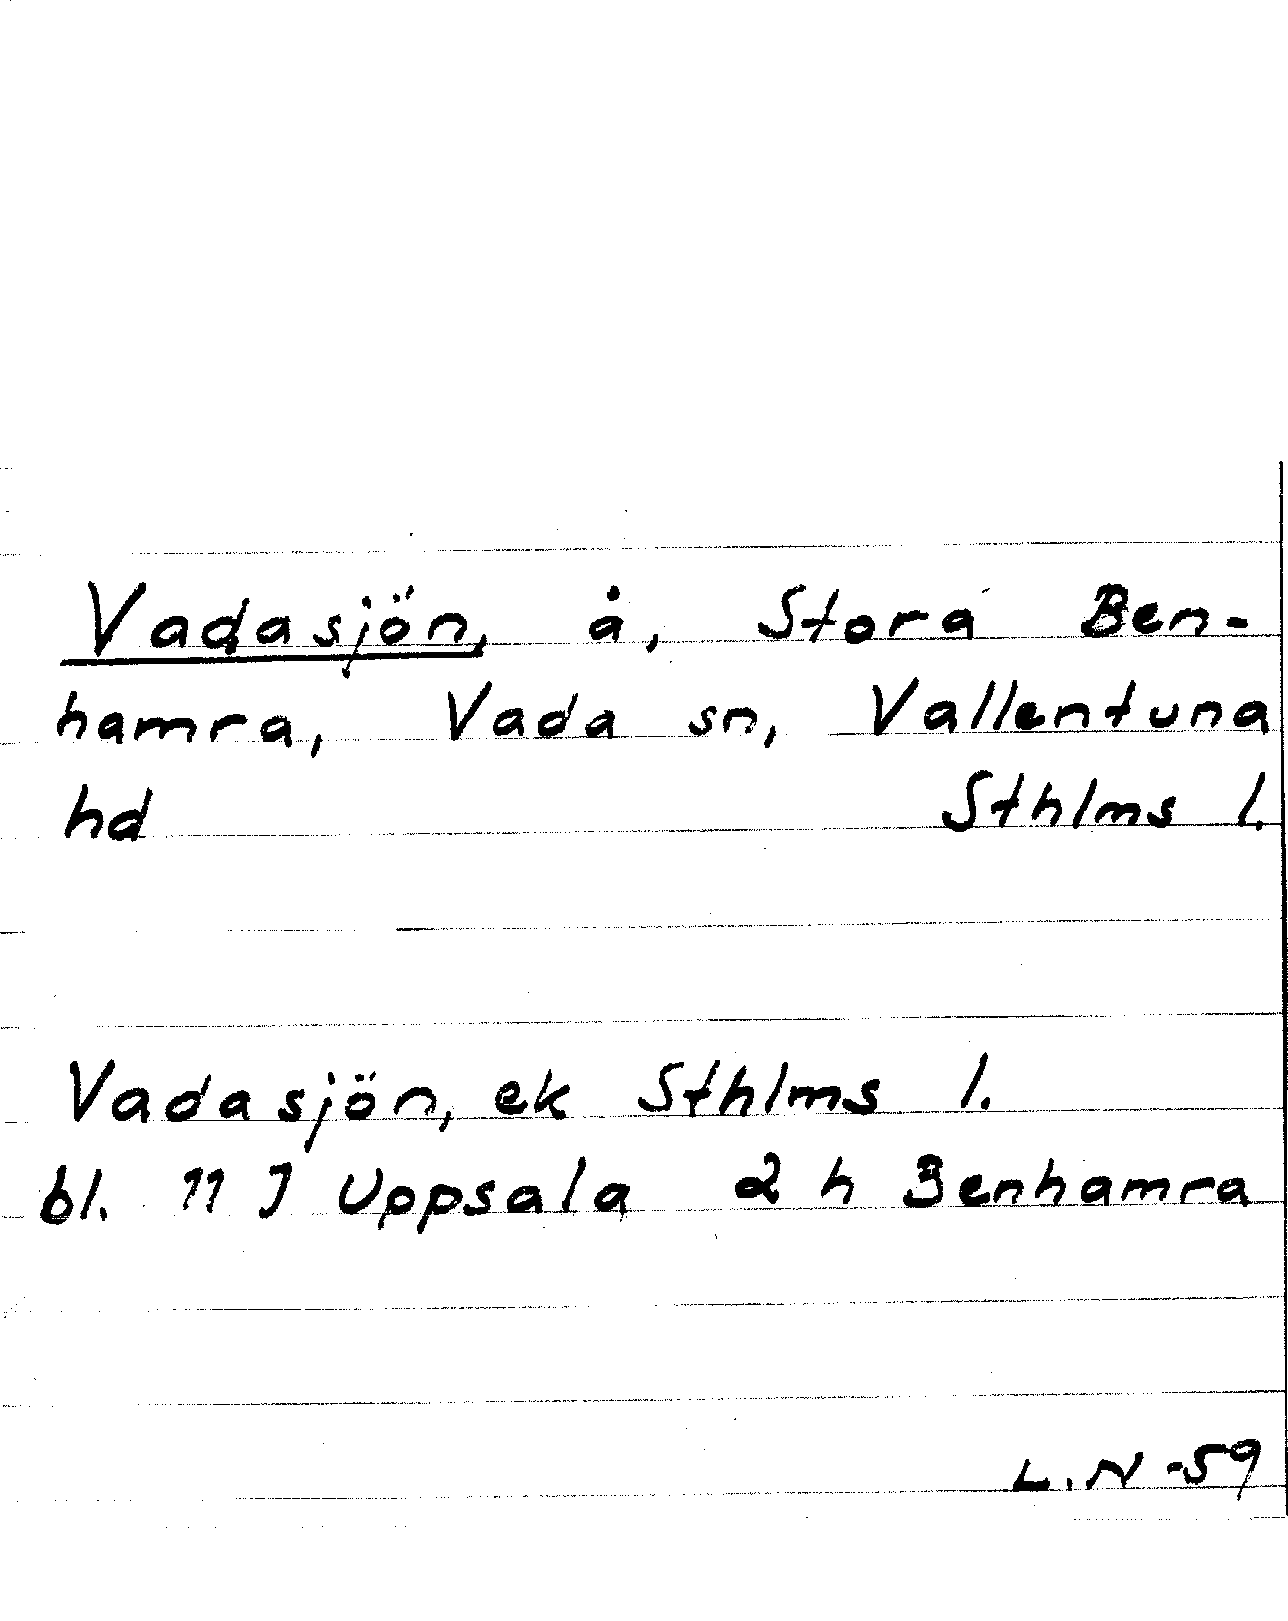 Vadasjön, å, Stora Ben-
hamra, Vada sn, Vallentuna
hd Sthlms l.
Vadasjön, ek Sthlms l.
bl. 11 J Uppsala 2 h Benhamra
L.N -59